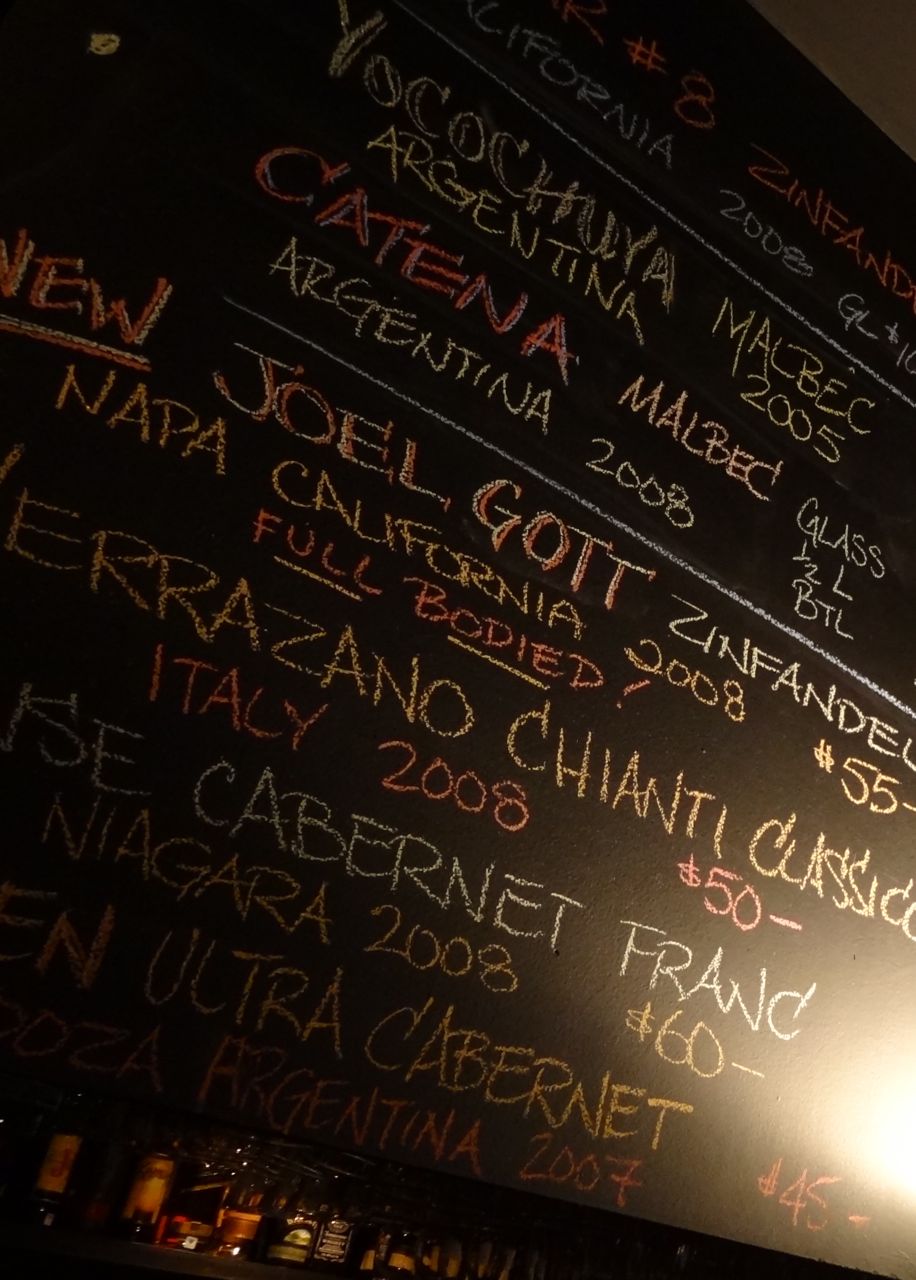 R #8 ZINFAND
CALIFORNIA 2008 GL $10
YOCOCHUYA MALBEC
ARGENTINA 2005
CATENA MALBEC GLASS
ARGENTINA 2008 ½ L
BTL
NEW JOEL GOTT ZINFANDEL
NAPA CALIFORNIA 2008 $55-
FULL BODIED!
VERRAZANO CHIANTI CLASSICO
ITALY 2008 $50-
KSE CABERNET FRANC
NIAGARA 2008 $60-
EN ULTRA CABERNET
DOZA ARGENTINA 2007 $45-